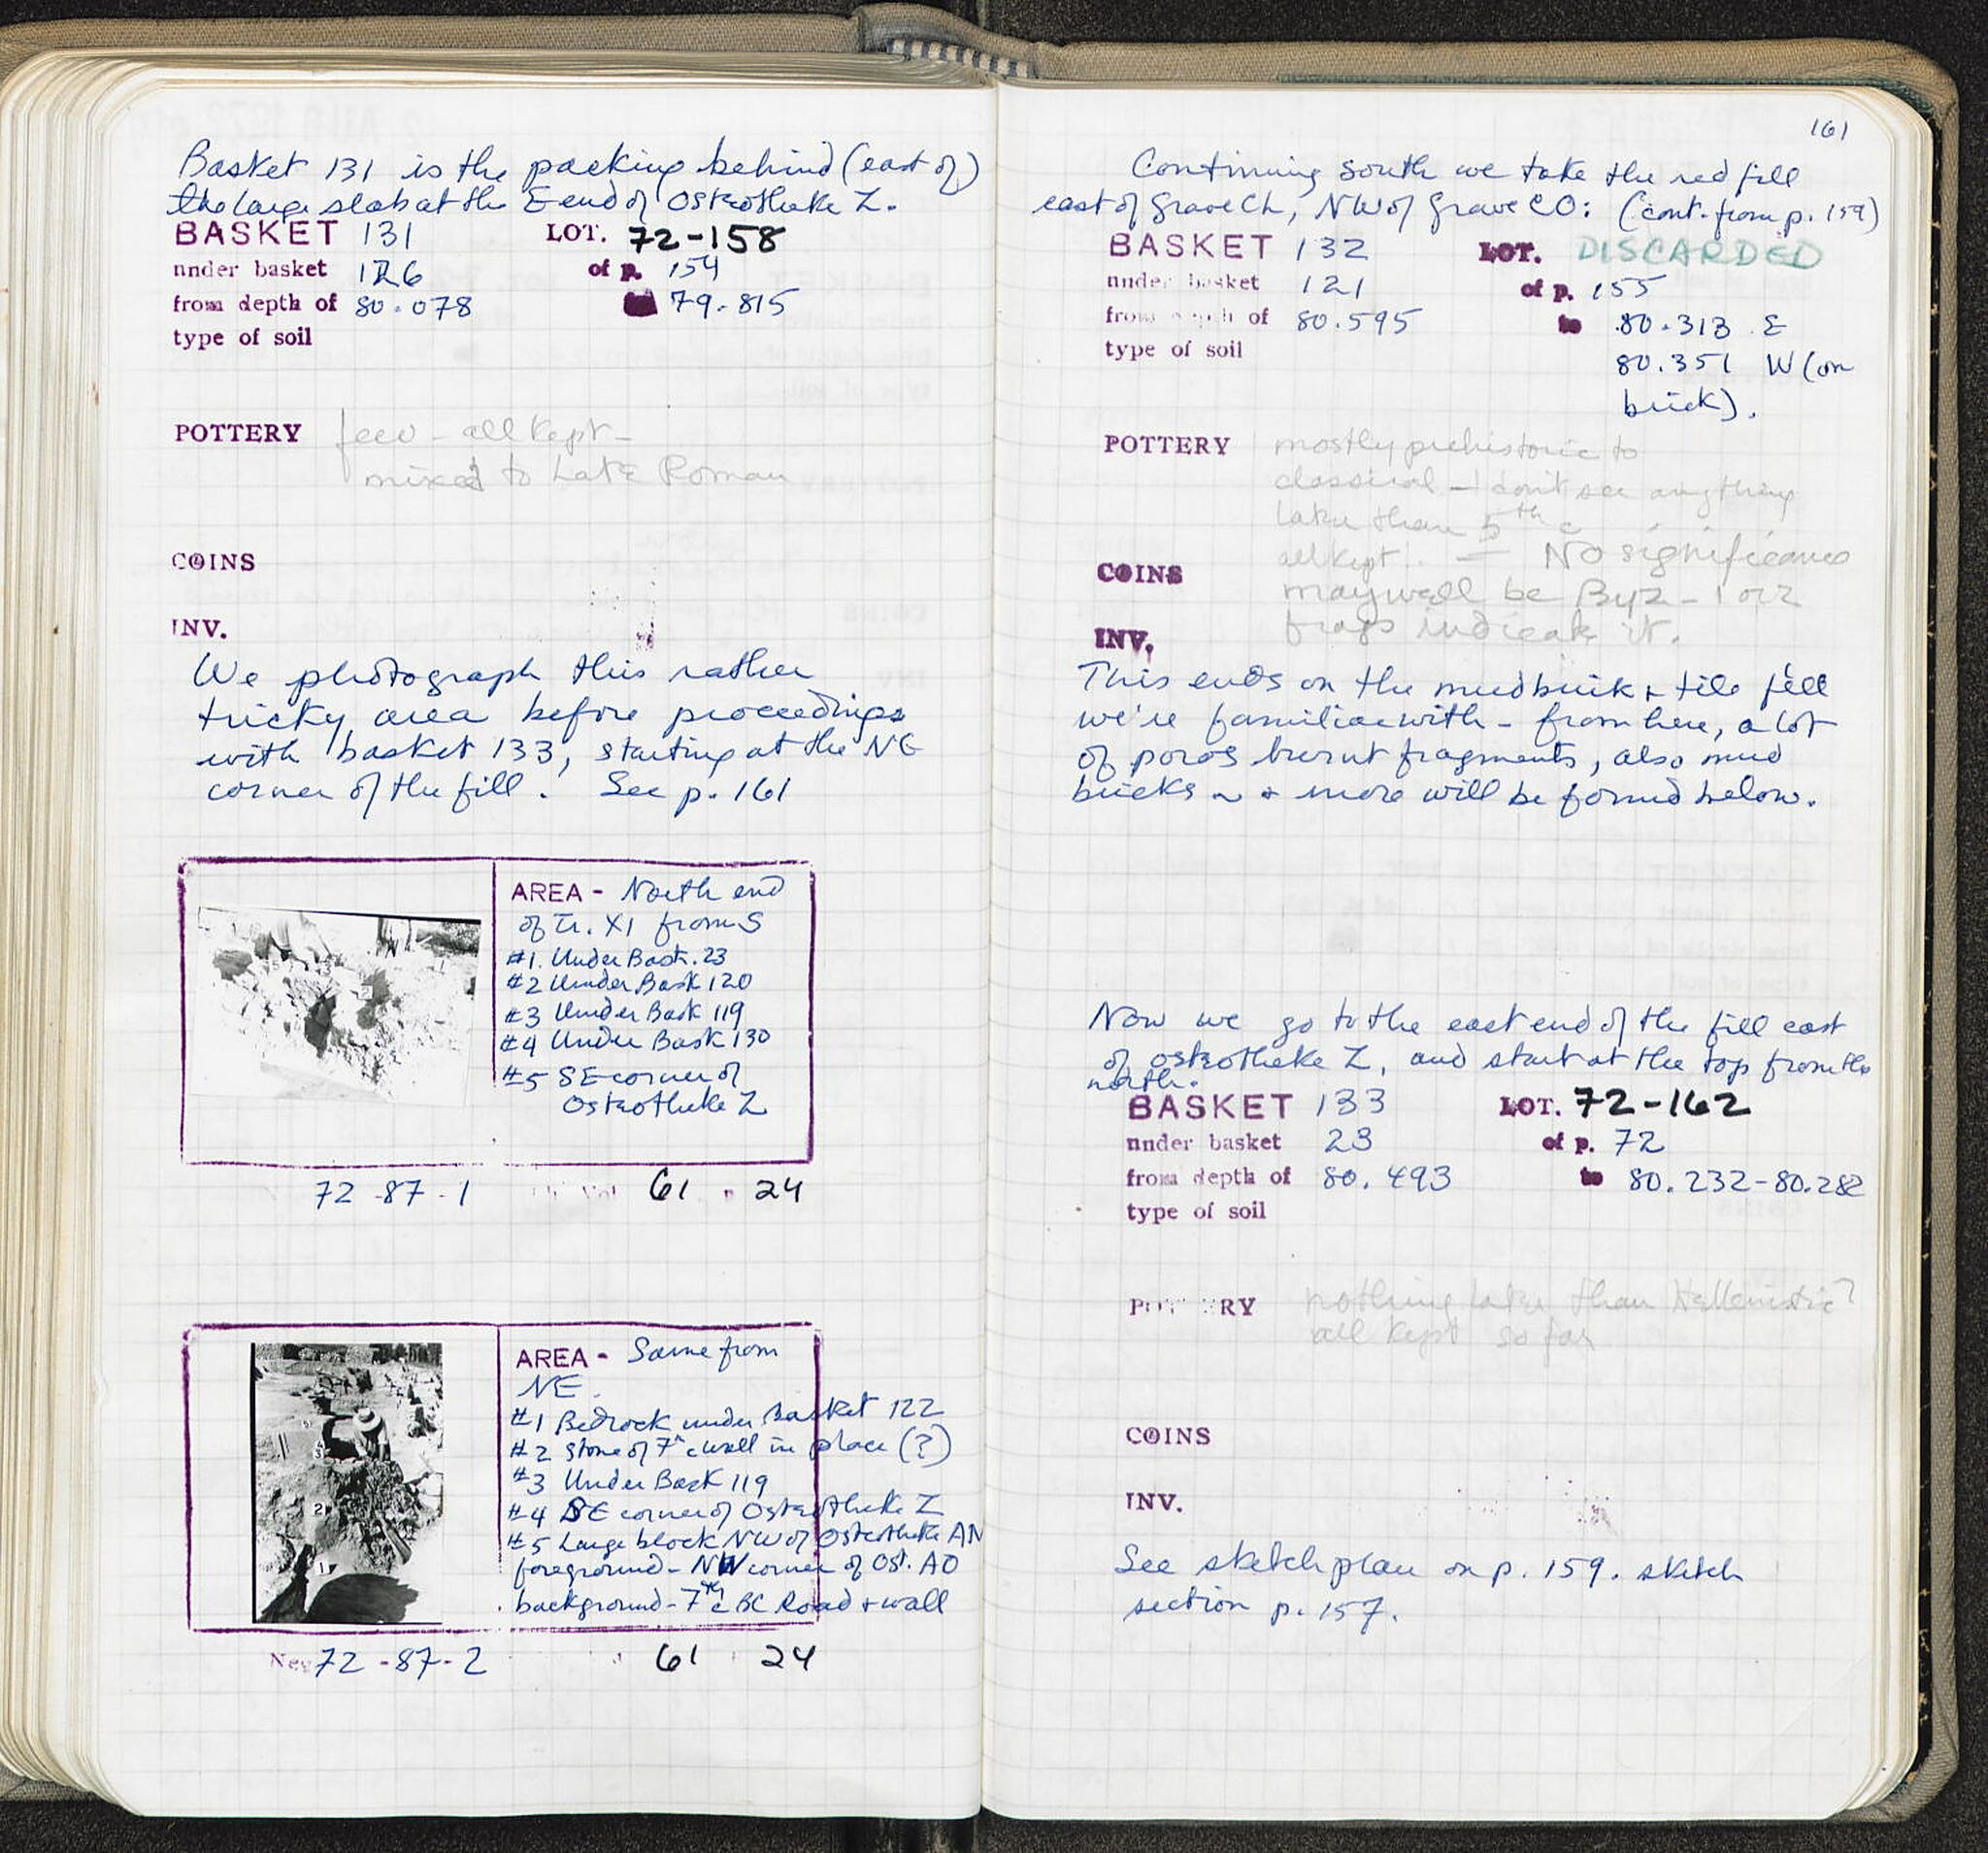 Basket 131 is the packing behind (east of)
the large slab at the E end of Osteotheke Z.
BASKET 131 LOT. 72-158
under basket 126 of p. 154
from depth of 80.078 79.815
type of soil
POTTERY few - all kept -
mixed to Late Roman
COINS
INV.
We photograph this rather
tricky area before proceedings
with basket 133, starting at the NE
corner of the fill. See p. 161
AREA - North end
of Tr. XI from S
#1. Under Bask. 23
#2 Under Bask 120
#3 Under Bask 119
#4 Under Bask 130
#5 SE corner of
Osteotheke Z
72-87-1 Vol 61 p 24
AREA - Same from
NE.
#1 Bedrock under Basket 122
#2 Stone of 7th c wall in place (?)
#3 Under Bask 119
#4 SE corner of Osteotheke Z
#5 Large block NW of Osteotheke AN
foreground - NW corner of Ost. AO
background - 7th c BC Road + wall
Neg 72-87-2 61 24
161
Continuing south we take the red fill
east of Grave Ch, NW of Grave CO: (cont. from p. 159)
BASKET 132 LOT. DISCARDED
under basket 121 of p. 155
from depth of 80.595 to 80.313 E
type of soil 80.351 W (on
brick).
POTTERY mostly prehistoric to
classical - I don't see anything
later than 5th c
all kept. - No significance
COINS may well be Byz - 1 or 2
frags indicate it.
INV.
This ends on the mudbrick + tile fell
we're familiar with - from here, a lot
of poros burnt fragments, also mud
bricks ~ + more will be found below.
Now we go to the east end of the fill east
of Osteotheke Z, and start at the top from the
north.
BASKET 133 LOT. 72-162
under basket 23 of p. 72
from depth of 80.493 to 80.232-80.282
type of soil
POTTERY nothing later than Hellenistic?
all kept so far
COINS
INV.
See sketch plan on p. 159. sketch
section p. 157.